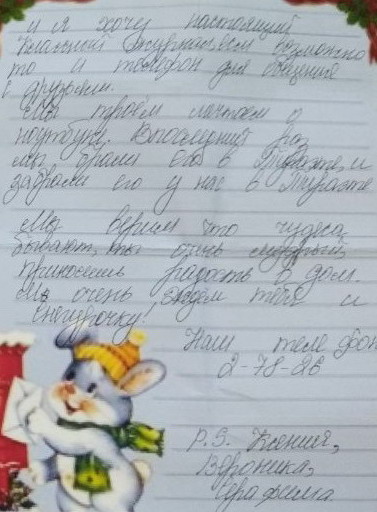 и я хочу настоящий
классный если возможно
то и телефон для общения
с друзьями.
Мы троем мечтаем о
ноутбуке. В последний раз
мы брали его в и
забрали его у нас в
Мы верим что чудеса
бывают, ты очень мудрый,
приносишь радость в дом.
Мы очень ждем тебя и
снегурочку!
Наш теле фон
2-78-26
P.S. Ксения,
Вероника,
Серафима